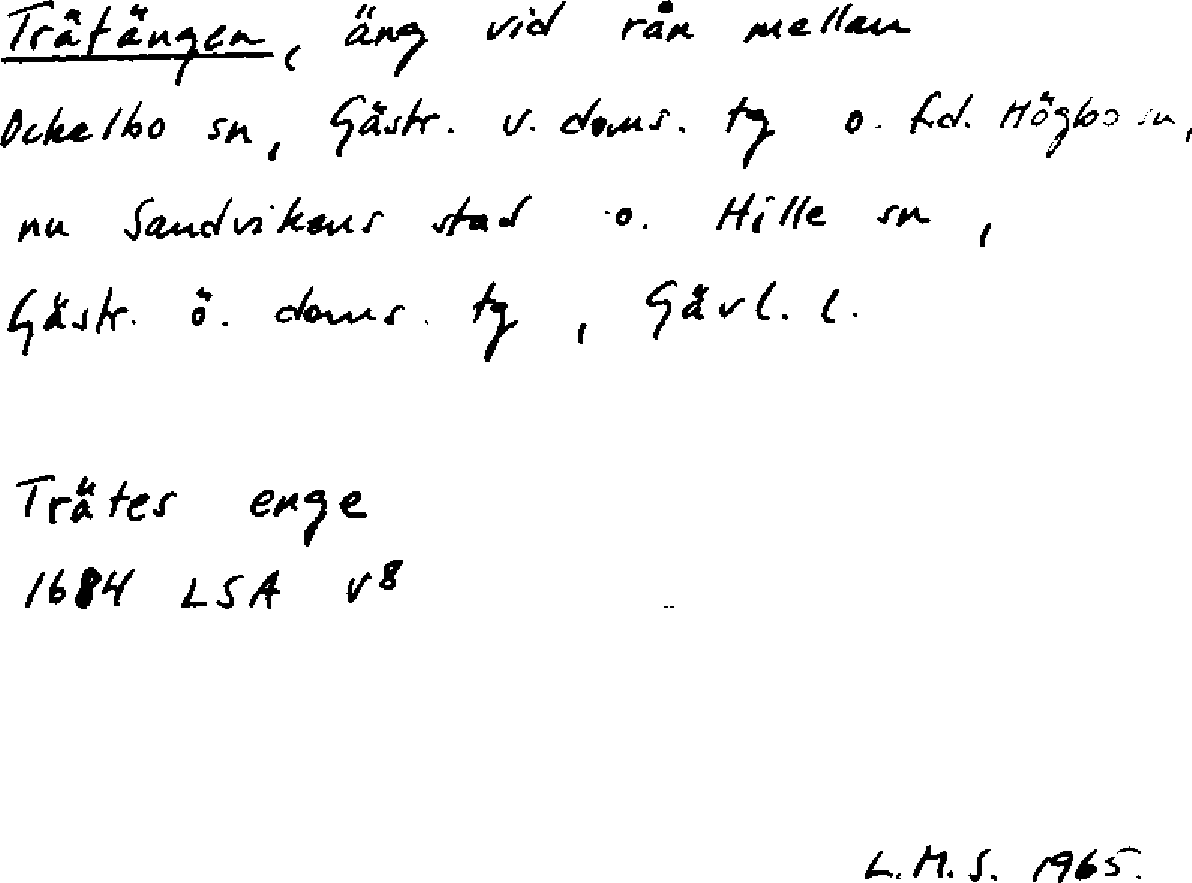 Trätängen, äng vid rån mellan
Ockelbo sn, Gästr. v. doms. tg o. f.d. Högbo sn,
nu Sandvikens stad o. Hille sn,
Gästr. ö. doms. tg, Gävl. l.
Trätes enge
1684 LSA v8
L.M.S. 1965.